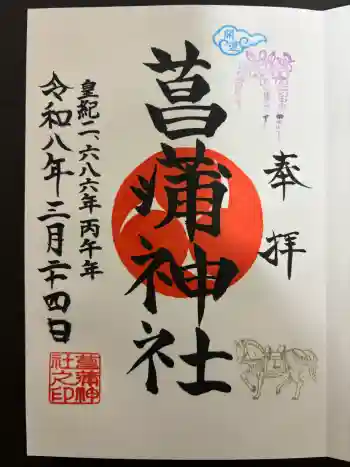 開運
奉拝
菖蒲神社
皇紀二、六八六年 丙午年
令和八年三月二十四日
菖蒲神
社之印